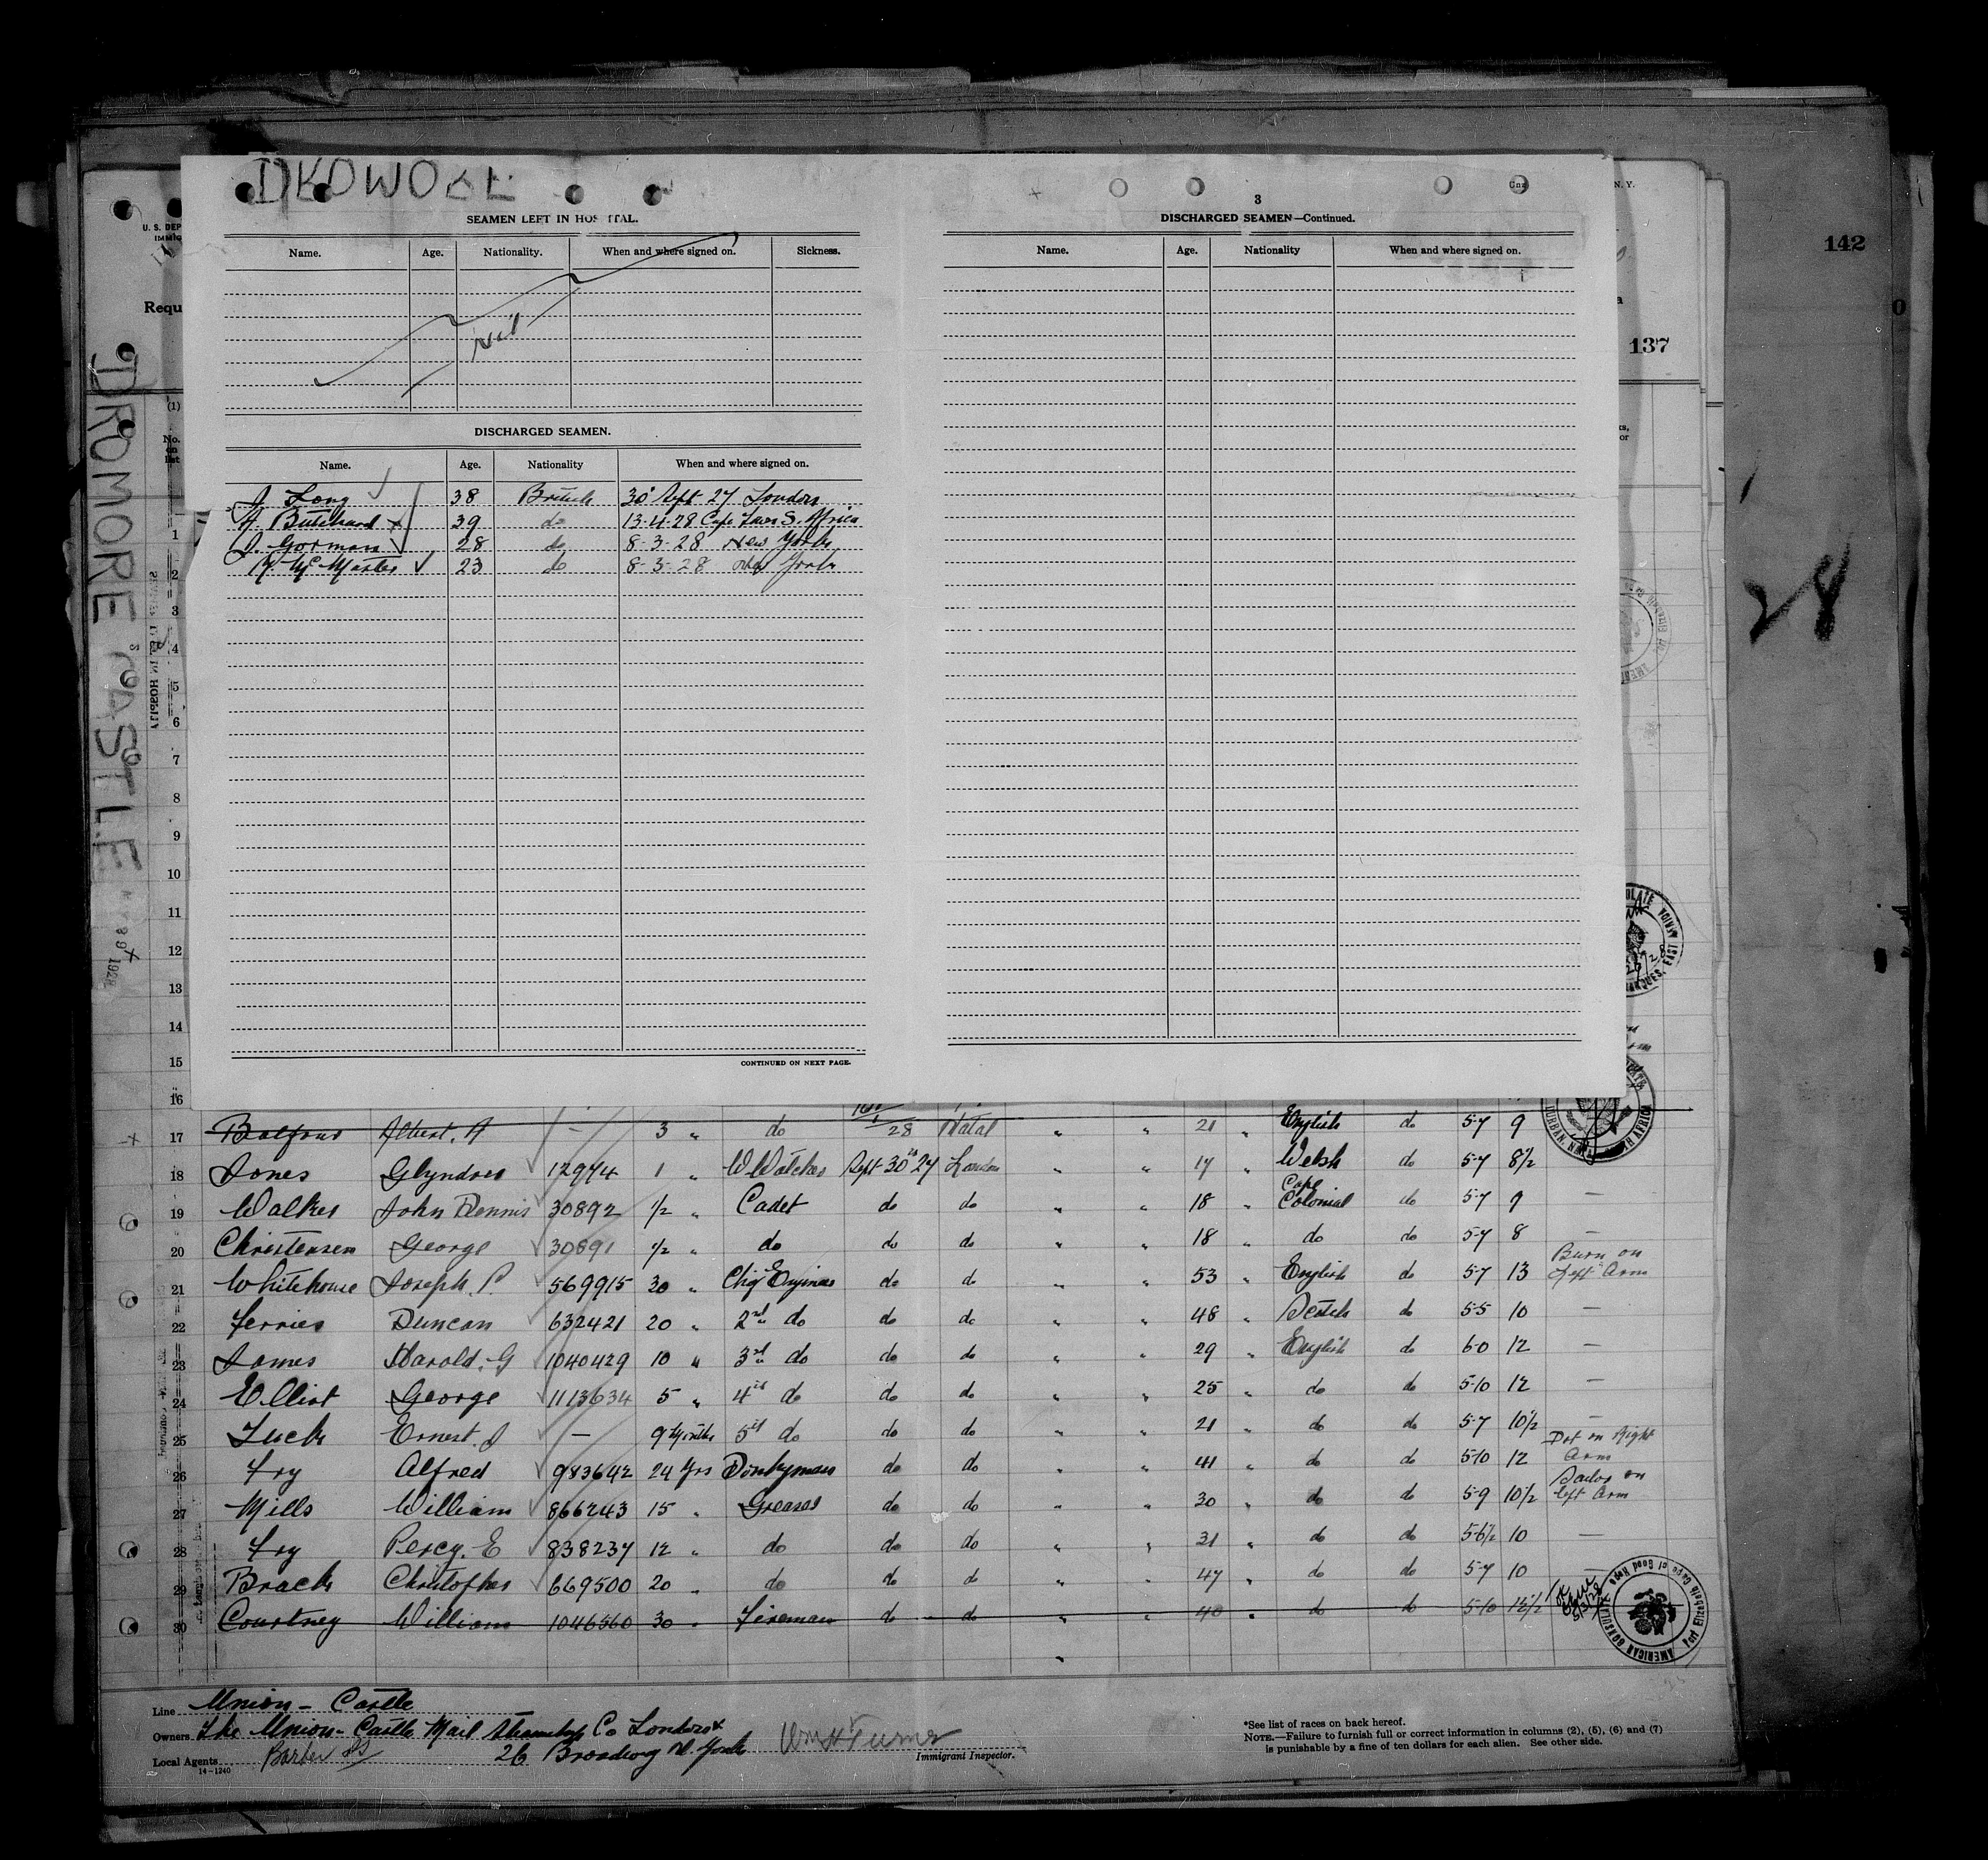 DROMORE
SEAMEN LEFT IN HOSPITAL.
Name. Age. Nationality. When and where signed on. Sickness.
Nil
DISCHARGED SEAMEN.
Name. Age. Nationality When and where signed on.
J. Long 38 British 30 Sept 27 London
39 do 13-4-28 Cape Town S. Africa
J. Gorman 28 do 8-3-28 New York
Mc Master 23 do 8-3-28 New York
CONTINUED ON NEXT PAGE.
3
DISCHARGED SEAMEN—Continued.
Name. Age. Nationality When and where signed on.
N. Y.
142
137
28
U. S. DEP
IMMIG
Requ
DROMORE CASTLE
(1)
No. on list
1
2
3
4
5
6
7
8
9
10
11
12
13
14
15
16
17 Balfour Albert. A — 3 " do 28 Natal " " 21 " English do 5-7 9
18 Jones Glyndwr 12974 1 " Sept 30th 27 London " " 17 " Welsh do 5-7 8½
19 Walker John Dennis 30892 ½ " Cadet do do " " 18 " Cape Colonial do 5-7 9 —
20 Christensen George 30891 ½ " do do do " " 18 " do do 5-7 8 —
21 Whitehouse Joseph. P. 569915 30 " Chief Engineer do do " " 53 " English do 5-7 13 Burn on Left Arm
22 Ferries Duncan 632421 20 " 2nd do do do " " 48 " Scotch do 5-5 10 —
23 James Harold. G 1040429 10 " 3rd do do do " " 29 " English do 6-0 12 —
24 Elliot George 1113634 5 " 4th do do do " " 25 " do do 5-10 12 —
25 Luck Ernest. J — 9 Months 5th do do do " " 21 " do do 5-7 10½ —
26 Fry Alfred 983642 24 Yrs Donkyman do do " " 41 " do do 5-10 12 Dot on Right Arm
27 Mills William 866243 15 " Greaser do do " " 30 " do do 5-9 10½ Sailor on left Arm
28 Fry Percy. E 838237 12 " do do do " " 31 " do do 5-6½ 10 —
29 Brack Christopher 669500 20 " do do do " " 47 " do do 5-7 10 —
30 Courtney William 1046560 30 " Fireman do do " " 40 " do do 5-10
AMERICAN CONSULATE Port Elizabeth Cape of Good Hope
Line Union - Castle
Owners The Union-Castle Mail Steamship Co London
Local Agents Barber 26 Broadway N. York
14-1240
Wm H Turner
Immigrant Inspector.
*See list of races on back hereof.
NOTE.—Failure to furnish full or correct information in columns (2), (5), (6) and (7)
is punishable by a fine of ten dollars for each alien. See other side.